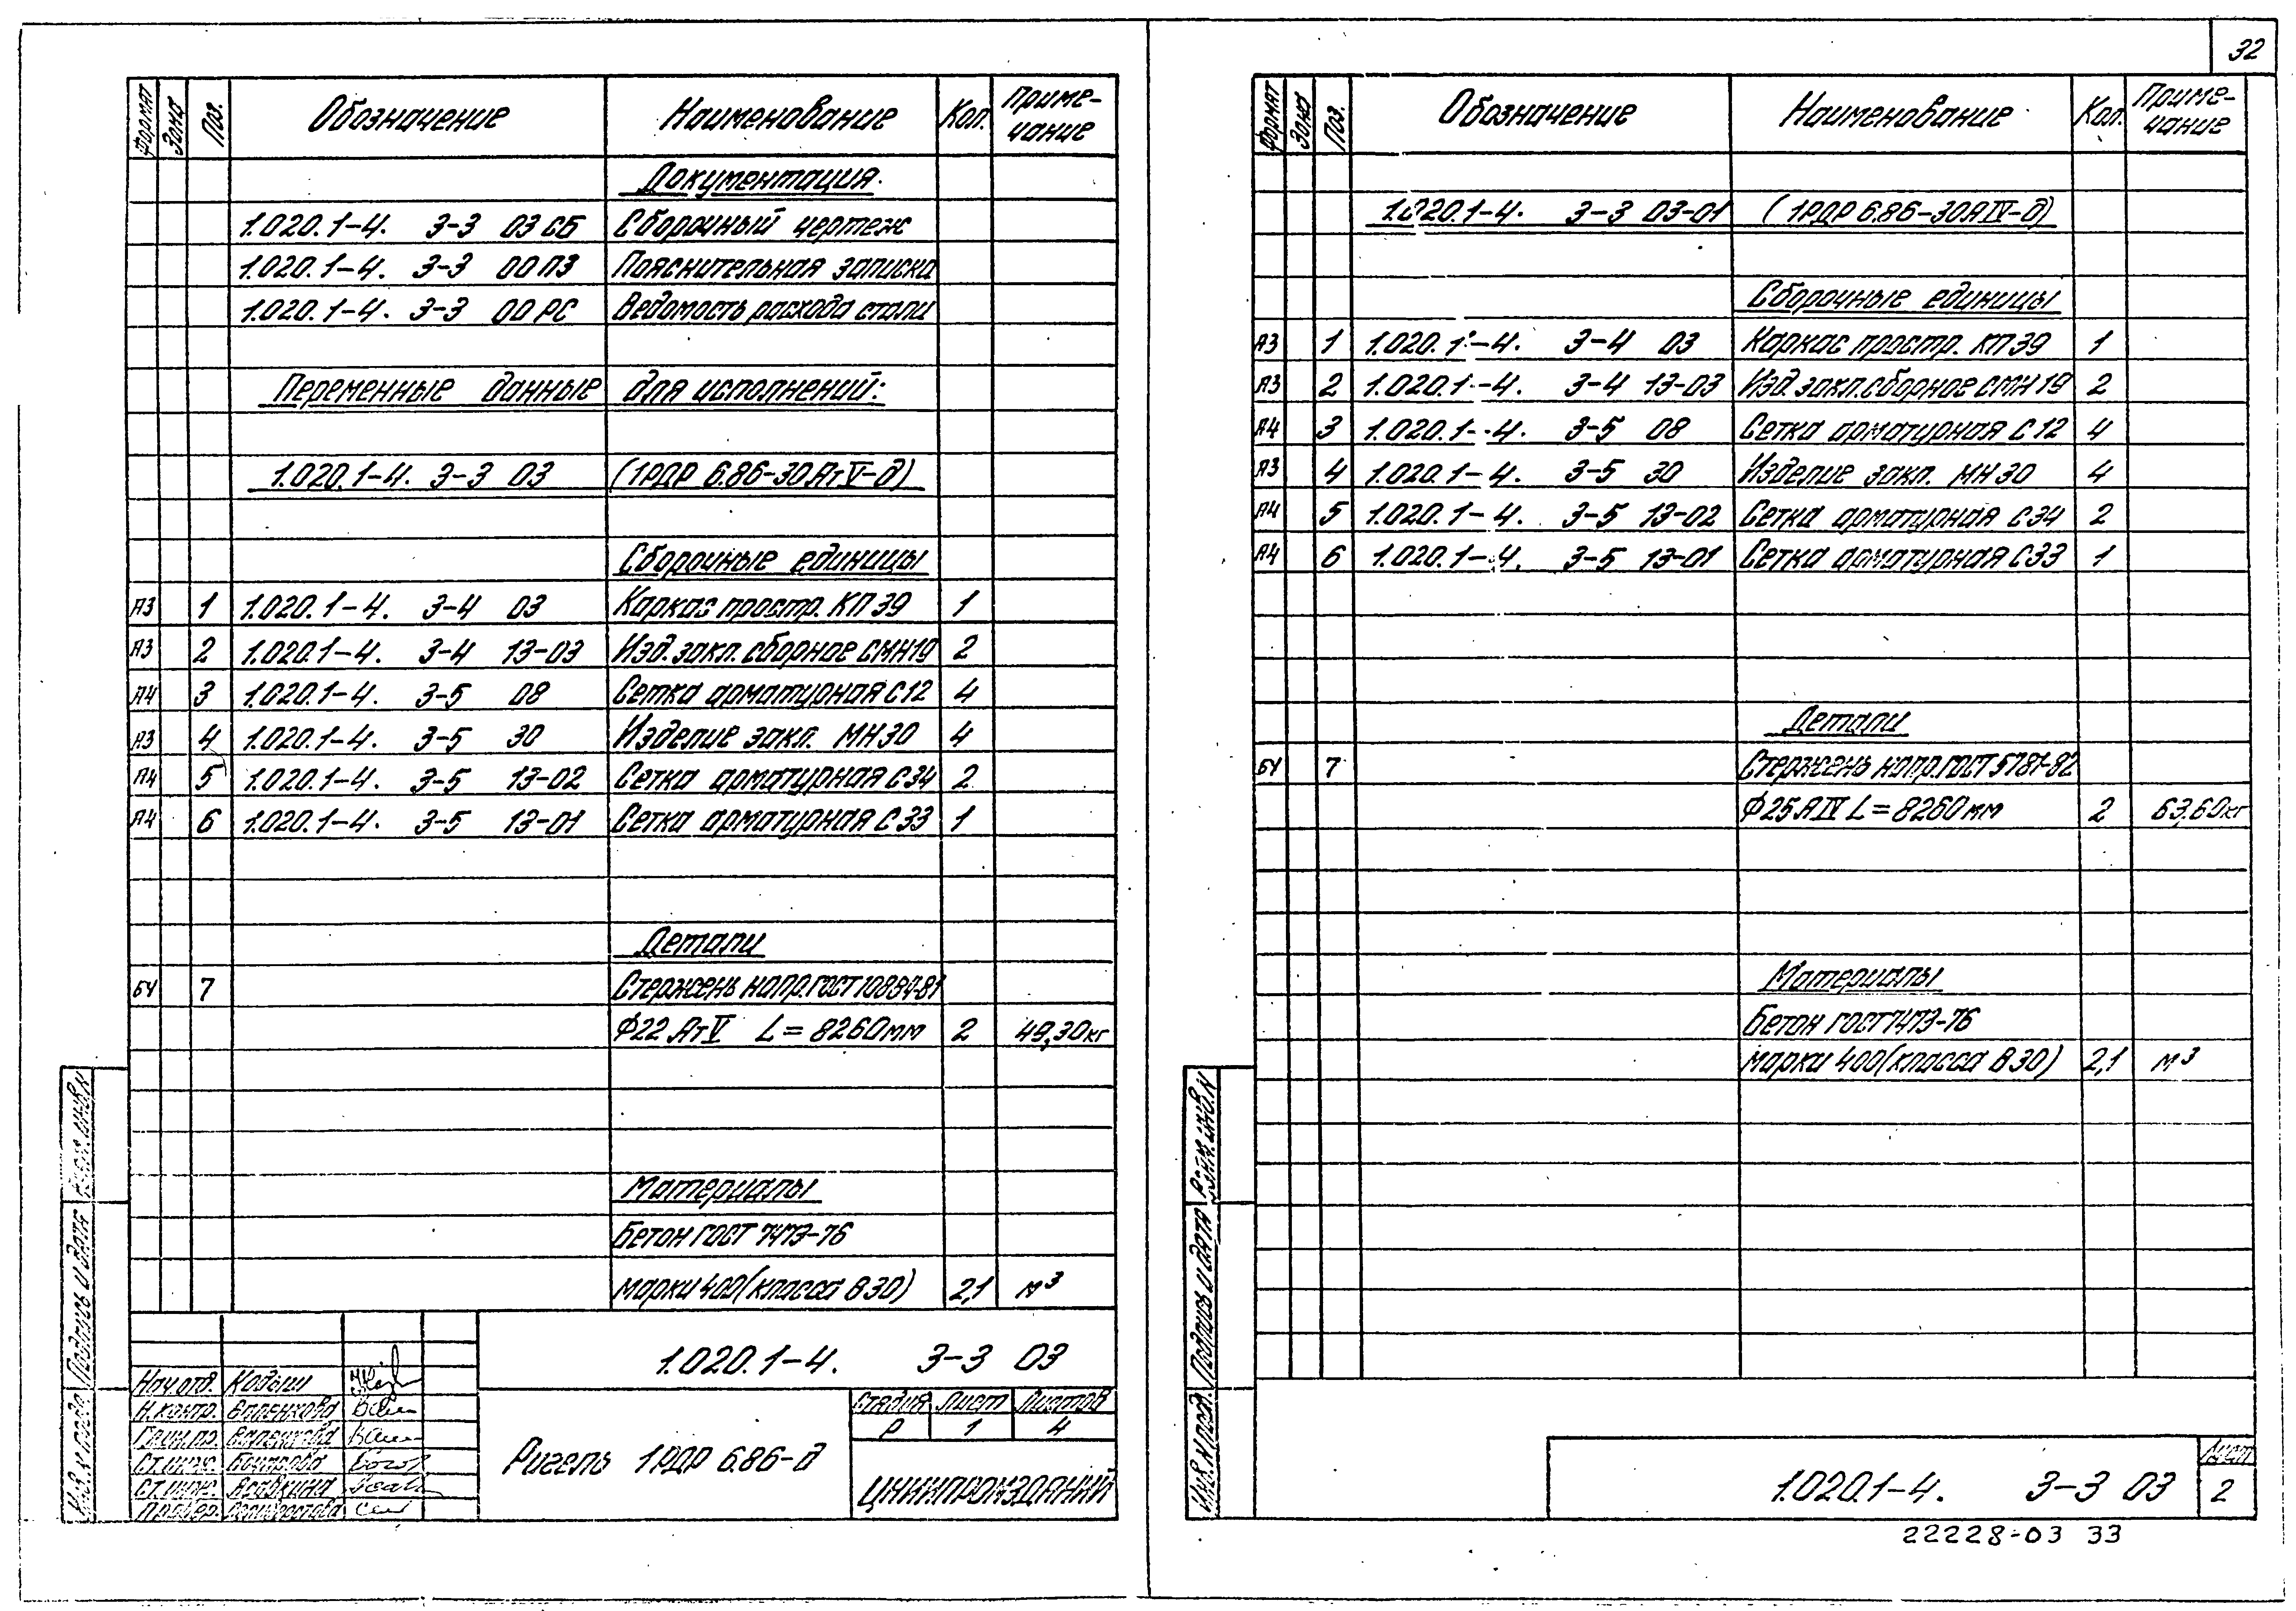 32
Формат Зона Поз. Обозначение Наименование Кол. Приме-чание
Документация
1.020.1-4. 3-3 03 СБ Сборочный чертеж
1.020.1-4. 3-3 00 ПЗ Пояснительная записка
1.020.1-4. 3-3 00 РС Ведомость расхода стали
Переменные данные для исполнений:
1.020.1-4. 3-3 03 (1РДР 6.86-30АтV-д)
Сборочные единицы
А3 1 1.020.1-4. 3-4 03 Каркас простр. КП39 1
А3 2 1.020.1-4. 3-4 13-03 Изд. закл. сборное СМН19 2
А4 3 1.020.1-4. 3-5 08 Сетка арматурная С12 4
А3 4 1.020.1-4. 3-5 30 Изделие закл. МН30 4
А4 5 1.020.1-4. 3-5 13-02 Сетка арматурная С34 2
А4 6 1.020.1-4. 3-5 13-01 Сетка арматурная С33 1
Детали
БЧ 7 Стержень напр. ГОСТ 10884-81
Ф22 АтV L=8260мм 2 49,30кг
Материалы
Бетон ГОСТ 7473-76
марки 400 (класса В30) 2,1 м³
1.020.1-4. 3-3 03
Нач.отд. Кодыш
Н.контр. Валенкова
Гл.ин.пр. Валенкова
Ст.инж.
Ст.инж.
Провер.
Ригель 1РДР 6.86-д
Стадия Лист Листов
Р 1 4
ЦНИИПРОМЗДАНИЙ
Инв.№ подл. Подпись и дата Взам.инв.№
Формат Зона Поз. Обозначение Наименование Кол. Приме-чание
1.020.1-4. 3-3 03-01 (1РДР 6.86-30АIV-д)
Сборочные единицы
А3 1 1.020.1-4. 3-4 03 Каркас простр. КП39 1
А3 2 1.020.1-4. 3-4 13-03 Изд. закл. сборное СМН19 2
А4 3 1.020.1-4. 3-5 08 Сетка арматурная С12 4
А3 4 1.020.1-4. 3-5 30 Изделие закл. МН30 4
А4 5 1.020.1-4. 3-5 13-02 Сетка арматурная С34 2
А4 6 1.020.1-4. 3-5 13-01 Сетка арматурная С33 1
Детали
БЧ 7 Стержень напр. ГОСТ 5781-82
Ф25 АIV L=8260мм 2 63,60кг
Материалы
Бетон ГОСТ 7473-76
марки 400 (класса В30) 2,1 м³
Инв.№ подл. Подпись и дата Взам.инв.№
1.020.1-4. 3-3 03
Лист
2
22228-03 33